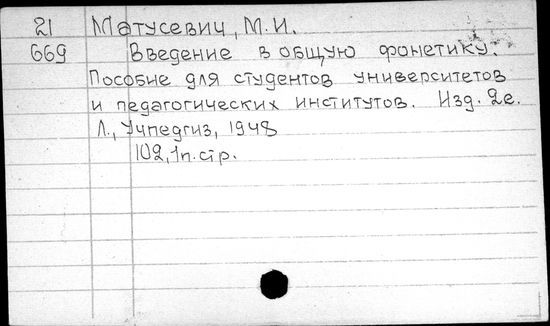 21 Матусевич, М.И.
669 Введение в общую фонетику.
Пособие для студентов университетов
и педагогических институтов. Изд. 2е.
Л., Учпедгиз, 1948
102, 1п. стр.